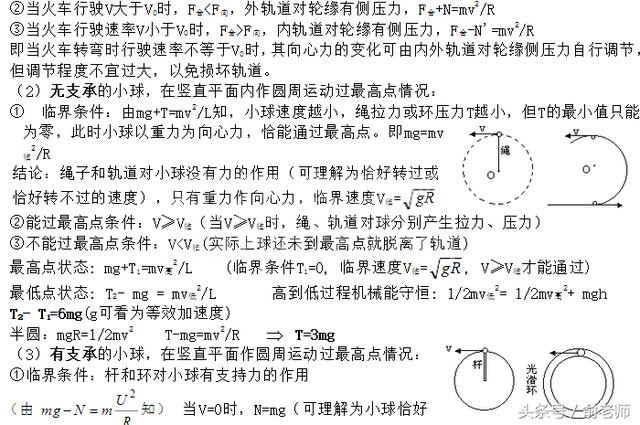 ②当火车行驶V大于V₀时，F合<F向，外轨道对轮缘有侧压力，F合+N=mv²/R
③当火车行驶速率V小于V₀时，F合>F向，内轨道对轮缘有侧压力，F合-N'=mv²/R
即当火车转弯时行驶速率不等于V₀时，其向心力的变化可由内外轨道对轮缘侧压力自行调节，
但调节程度不宜过大，以免损坏轨道。
（2）无支承的小球，在竖直平面内作圆周运动过最高点情况：
① 临界条件：由mg+T=mv²/L知，小球速度越小，绳拉力或环压力T越小，但T的最小值只能
为零，此时小球以重力为向心力，恰能通过最高点。即mg=mv
临²/R
结论：绳子和轨道对小球没有力的作用（可理解为恰好转过或
恰好转不过的速度），只有重力作向心力，临界速度V临=√gR
v
绳
O
v
O
②能过最高点条件：V≥V临（当V≥V临时，绳、轨道对球分别产生拉力、压力）
③不能过最高点条件：V<V临(实际上球还未到最高点就脱离了轨道)
最高点状态: mg+T₁=mv高²/L (临界条件T₁=0, 临界速度V临=√gR, V≥V临才能通过)
最低点状态: T₂- mg = mv低²/L 高到低过程机械能守恒: 1/2mv低²= 1/2mv高²+ mgh
T₂- T₁=6mg(g可看为等效加速度)
半圆: mgR=1/2mv² T-mg=mv²/R ⇒ T=3mg
（3）有支承的小球，在竖直平面作圆周运动过最高点情况：
①临界条件：杆和环对小球有支持力的作用
（由 mg-N=mU²/R 知） 当V=0时，N=mg（可理解为小球恰好
v
杆
光滑环
头条号/俞老师